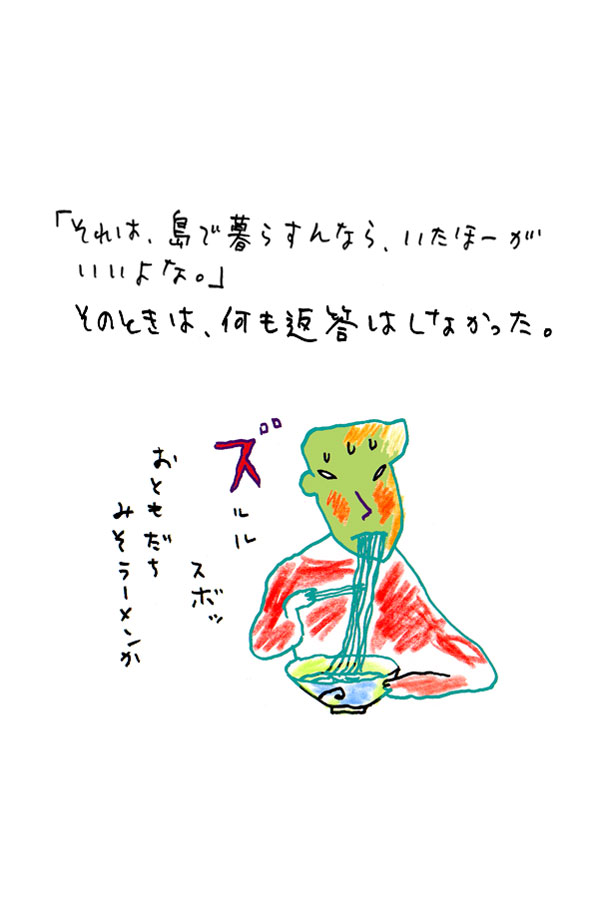 「それは、島で暮らすんなら、いたほーが
いいよな。」
そのときは、何も返答はしなかった。
ズルル
スボッ
おともだち
みそラーメンか